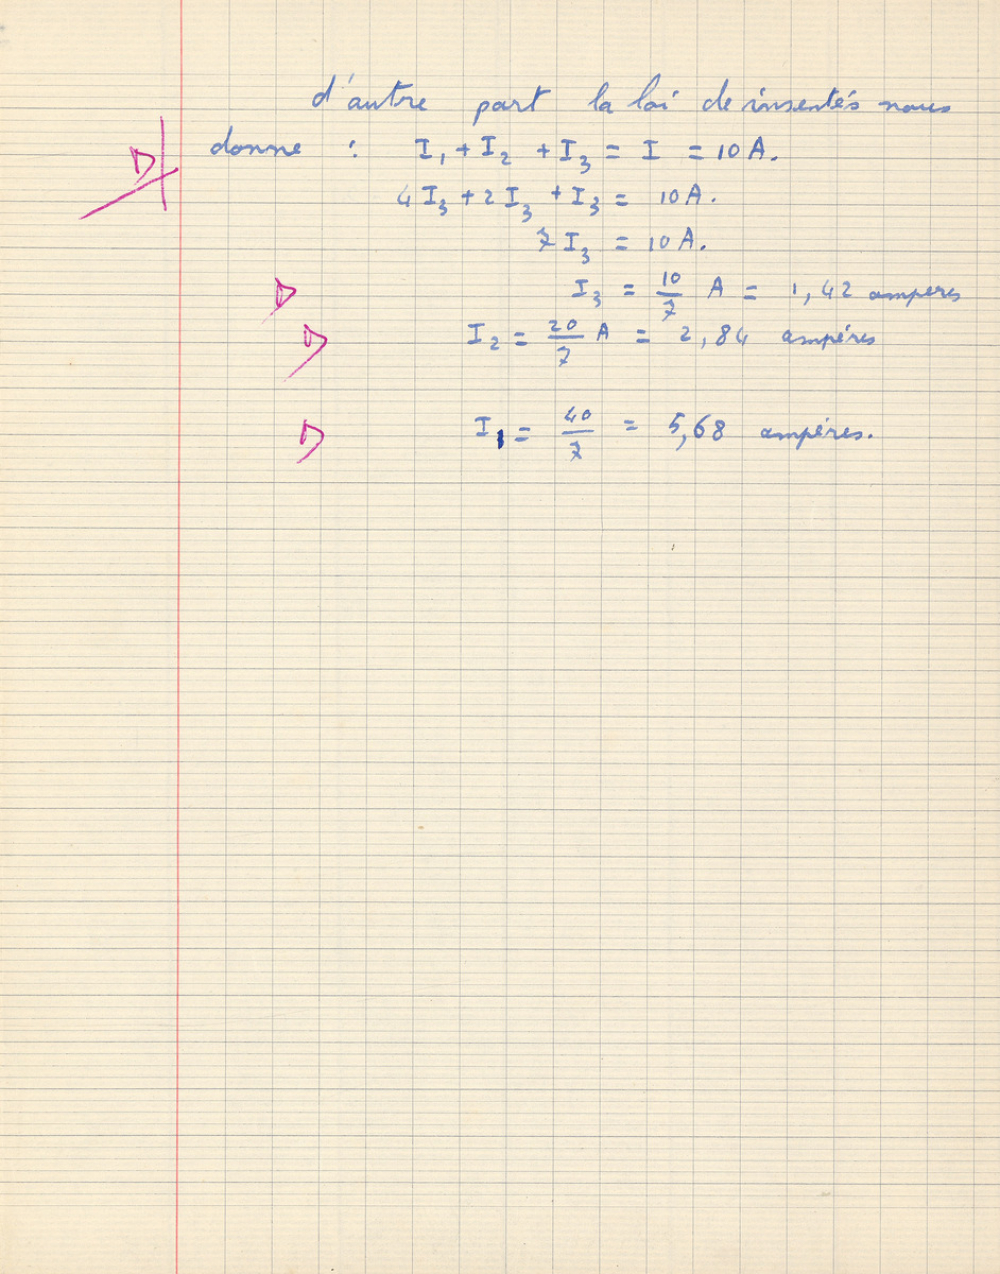 d'autre part la loi de insentés nous
donne : I₁ + I₂ + I₃ = I = 10 A.
4 I₃ + 2 I₃ + I₃ = 10 A.
7 I₃ = 10 A.
I₃ = 10/7 A = 1,42 amperes
I₂ = 20/7 A = 2,84 ampéres
I₁ = 40/7 = 5,68 ampéres.